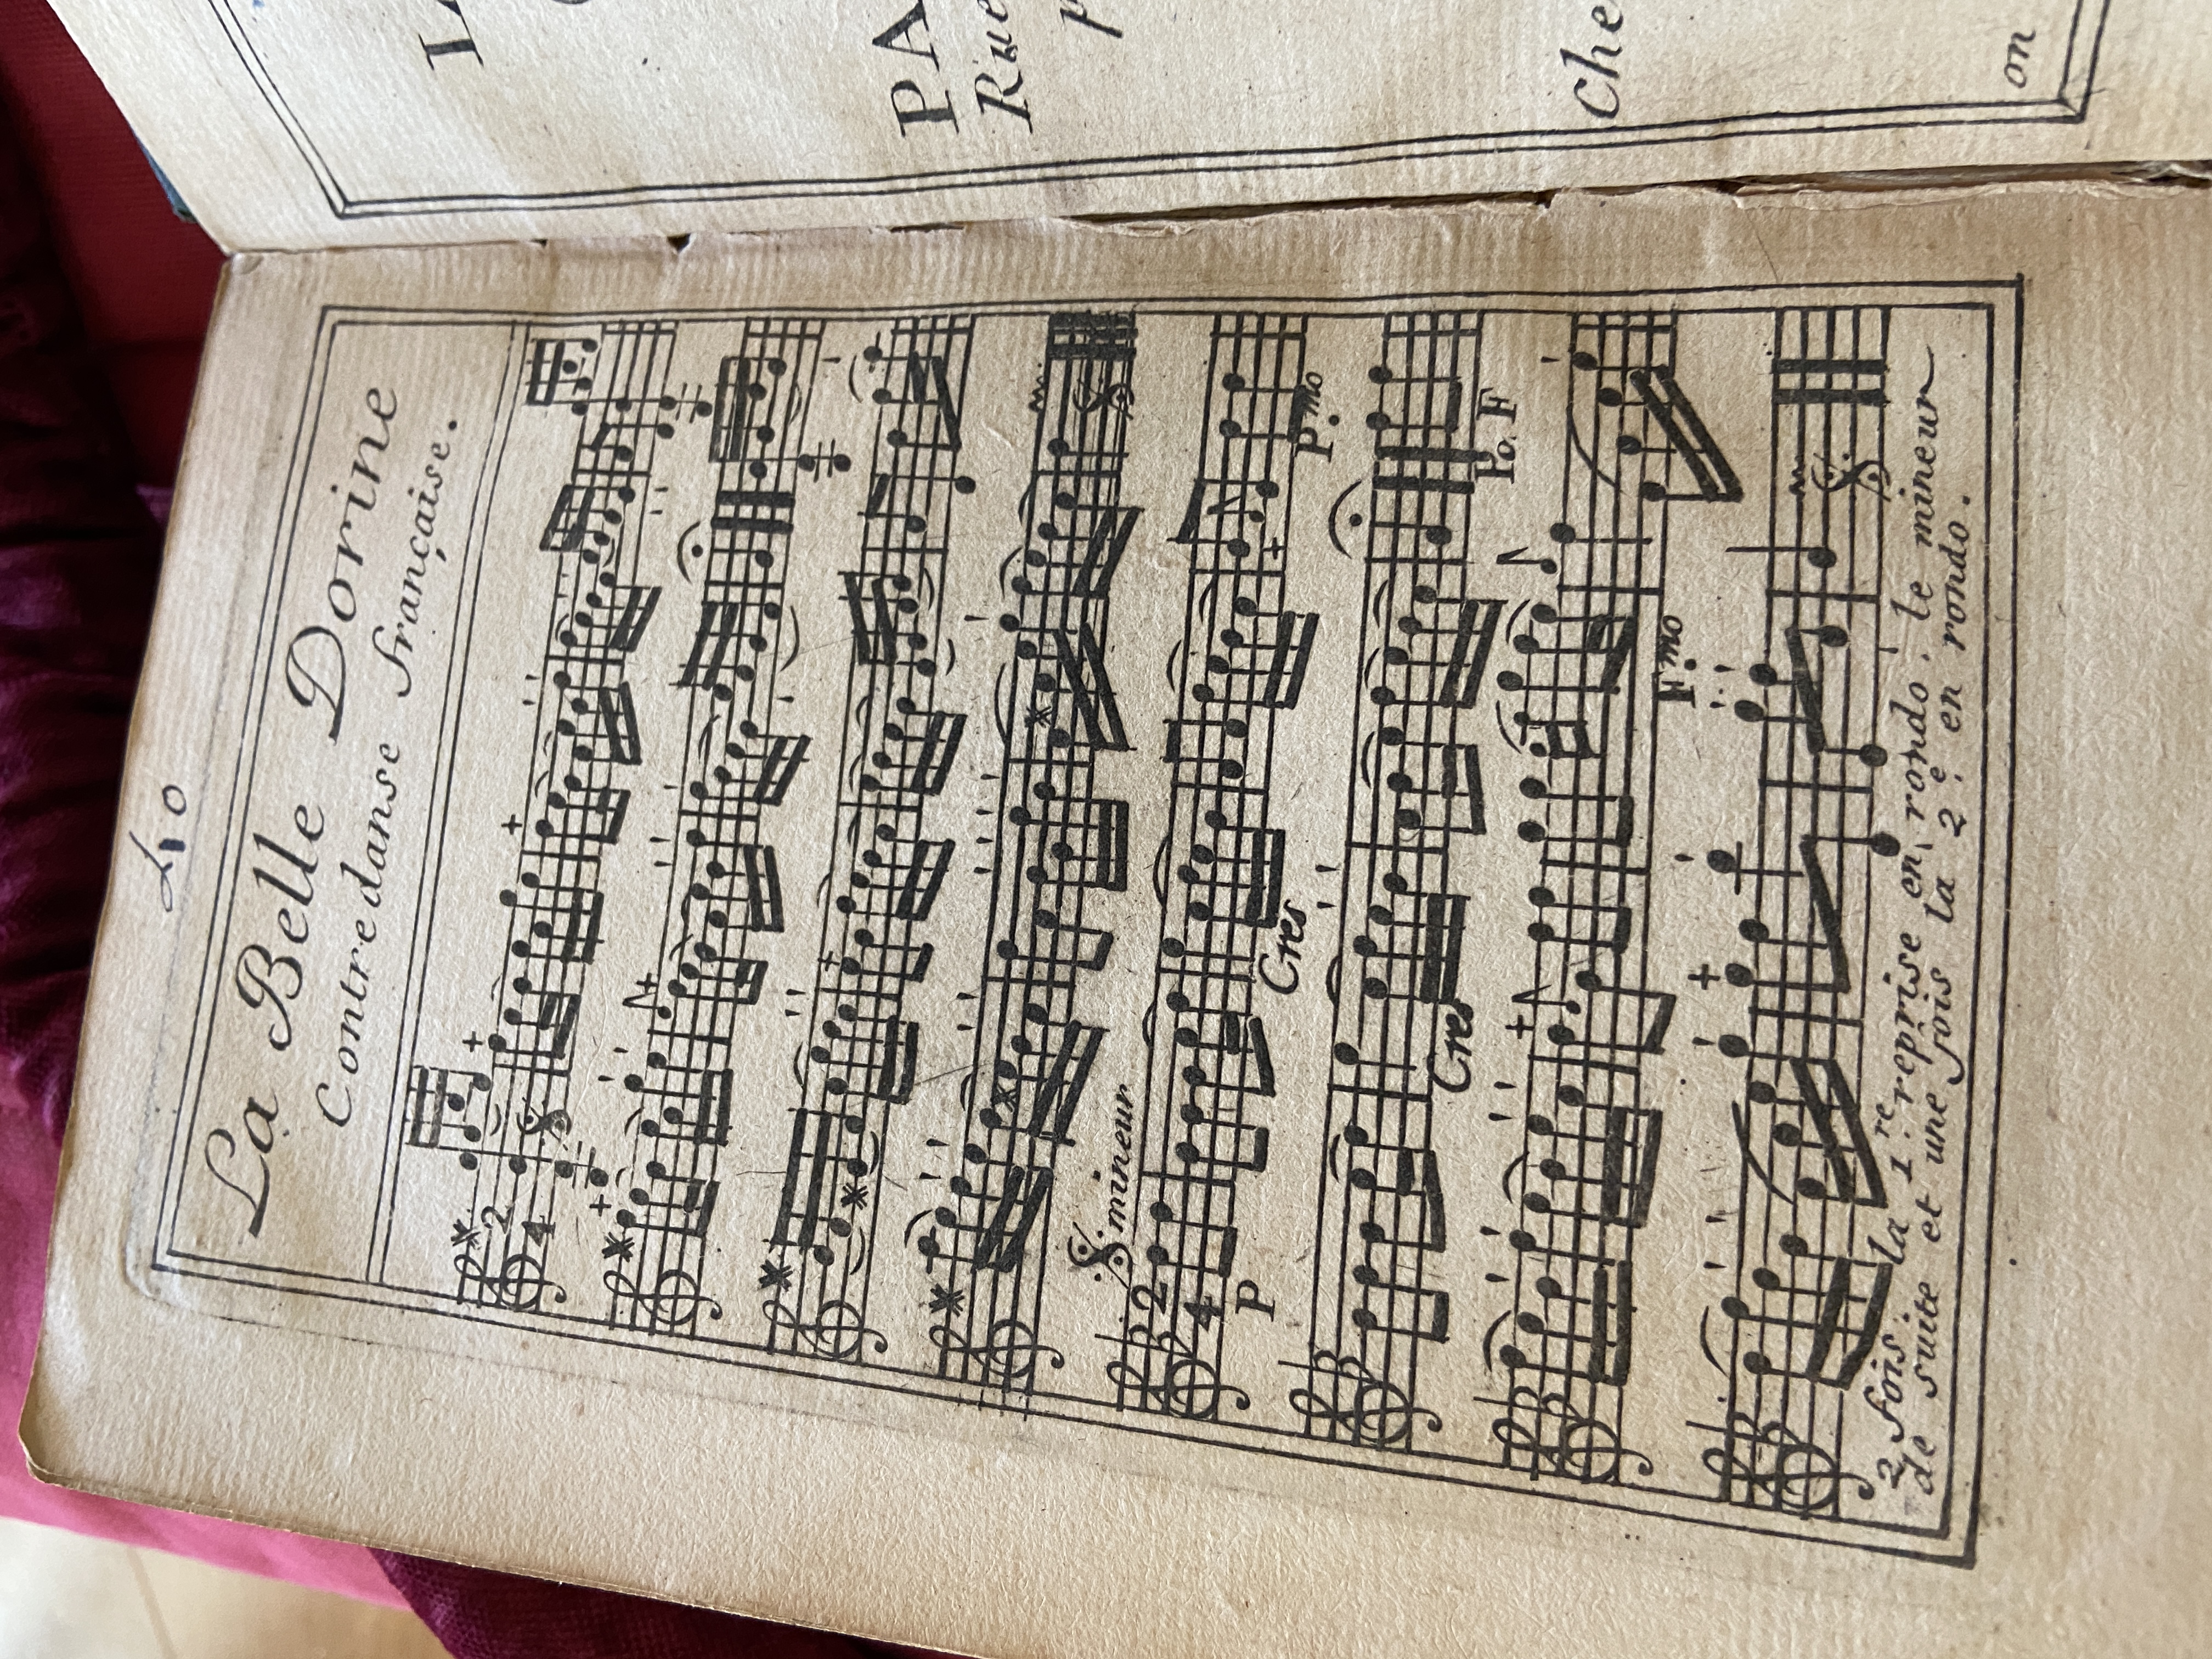 40
La Belle Dorine
Contredanse française.
2
4
mineur
2
4
P
Cres
P.mo
Cres
Po. F
F.mo
2 fois. la 1.re reprise en rondo. le mineur
de suite et une fois la 2.e en rondo.
PA
Rue
p
Che
on